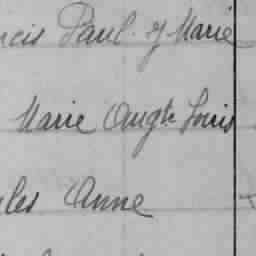 ncis Paul. y Marie
Marie Augte Louis
les Anne